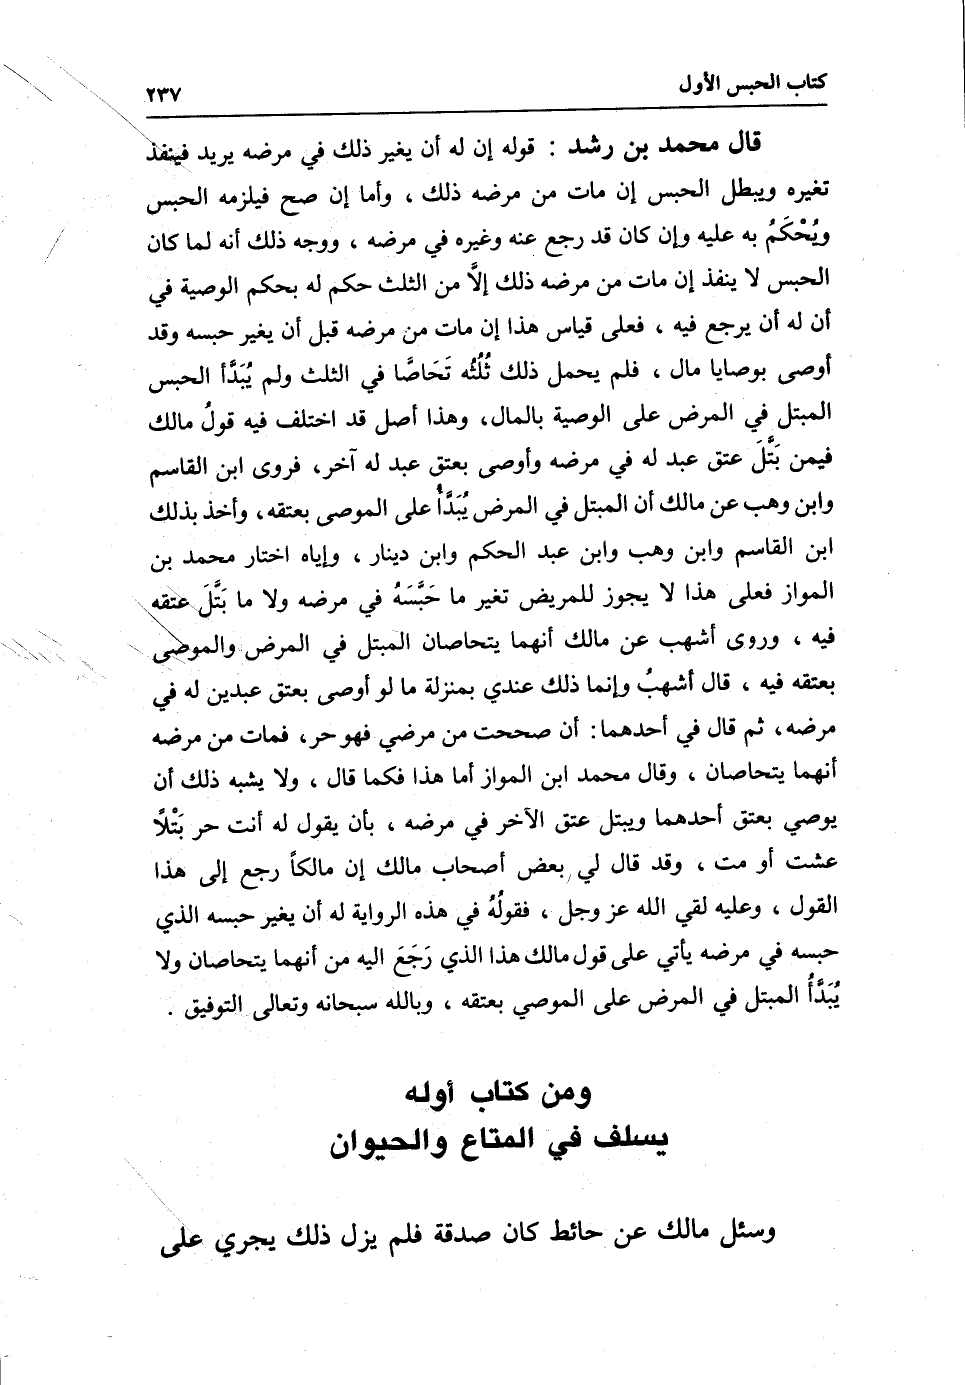 كتاب الحبس الأول
٢٣٧
قال محمد بن رشد : قوله إن له أن يغير ذلك في مرضه يريد فينفذ
تغيره ويبطل الحبس إن مات من مرضه ذلك ، وأما إن صح فيلزمه الحبس
ويُحْكَمُ به عليه وإن كان قد رجع عنه وغيره في مرضه ، ووجه ذلك أنه لما كان
الحبس لا ينفذ إن مات من مرضه ذلك إلَّا من الثلث حكم له بحكم الوصية في
أن له أن يرجع فيه ، فعلى قياس هذا إن مات من مرضه قبل أن يغير حبسه وقد
أوصى بوصايا مال ، فلم يحمل ذلك ثُلُثُه تَحَاصَّا في الثلث ولم يُبَدَّأ الحبس
المبتل في المرض على الوصية بالمال، وهذا أصل قد اختلف فيه قولُ مالك
فيمن بَتَّلَ عتق عبد له في مرضه وأوصى بعتق عبد له آخر، فروى ابن القاسم
وابن وهب عن مالك أن المبتل في المرض يُبَدَّأُ على الموصى بعتقه، وأخذ بذلك
ابن القاسم وابن وهب وابن عبد الحكم وابن دينار ، وإياه اختار محمد بن
المواز فعلى هذا لا يجوز للمريض تغير ما حَبَّسَهُ في مرضه ولا ما بَتَّلَ عتقه
فيه ، وروى أشهب عن مالك أنهما يتحاصان المبتل في المرض والموصى
بعتقه فيه ، قال أشهبُ وإنما ذلك عندي بمنزلة ما لو أوصى بعتق عبدين له في
مرضه، ثم قال في أحدهما: أن صححت من مرضي فهو حر، فمات من مرضه
أنهما يتحاصان ، وقال محمد ابن المواز أما هذا فكما قال ، ولا يشبه ذلك أن
يوصي بعتق أحدهما ويبتل عتق الآخر في مرضه ، بأن يقول له أنت حر بَتْلًا
عشت أو مت ، وقد قال لي بعض أصحاب مالك إن مالكاً رجع إلى هذا
القول ، وعليه لقي الله عز وجل ، فقولُهُ في هذه الرواية له أن يغير حبسه الذي
حبسه في مرضه يأتي على قول مالك هذا الذي رَجَعَ اليه من أنهما يتحاصان ولا
يُبَدَّأُ المبتل في المرض على الموصي بعتقه ، وبالله سبحانه وتعالى التوفيق .
ومن كتاب أوله
يسلف في المتاع والحيوان
وسئل مالك عن حائط كان صدقة فلم يزل ذلك يجري على